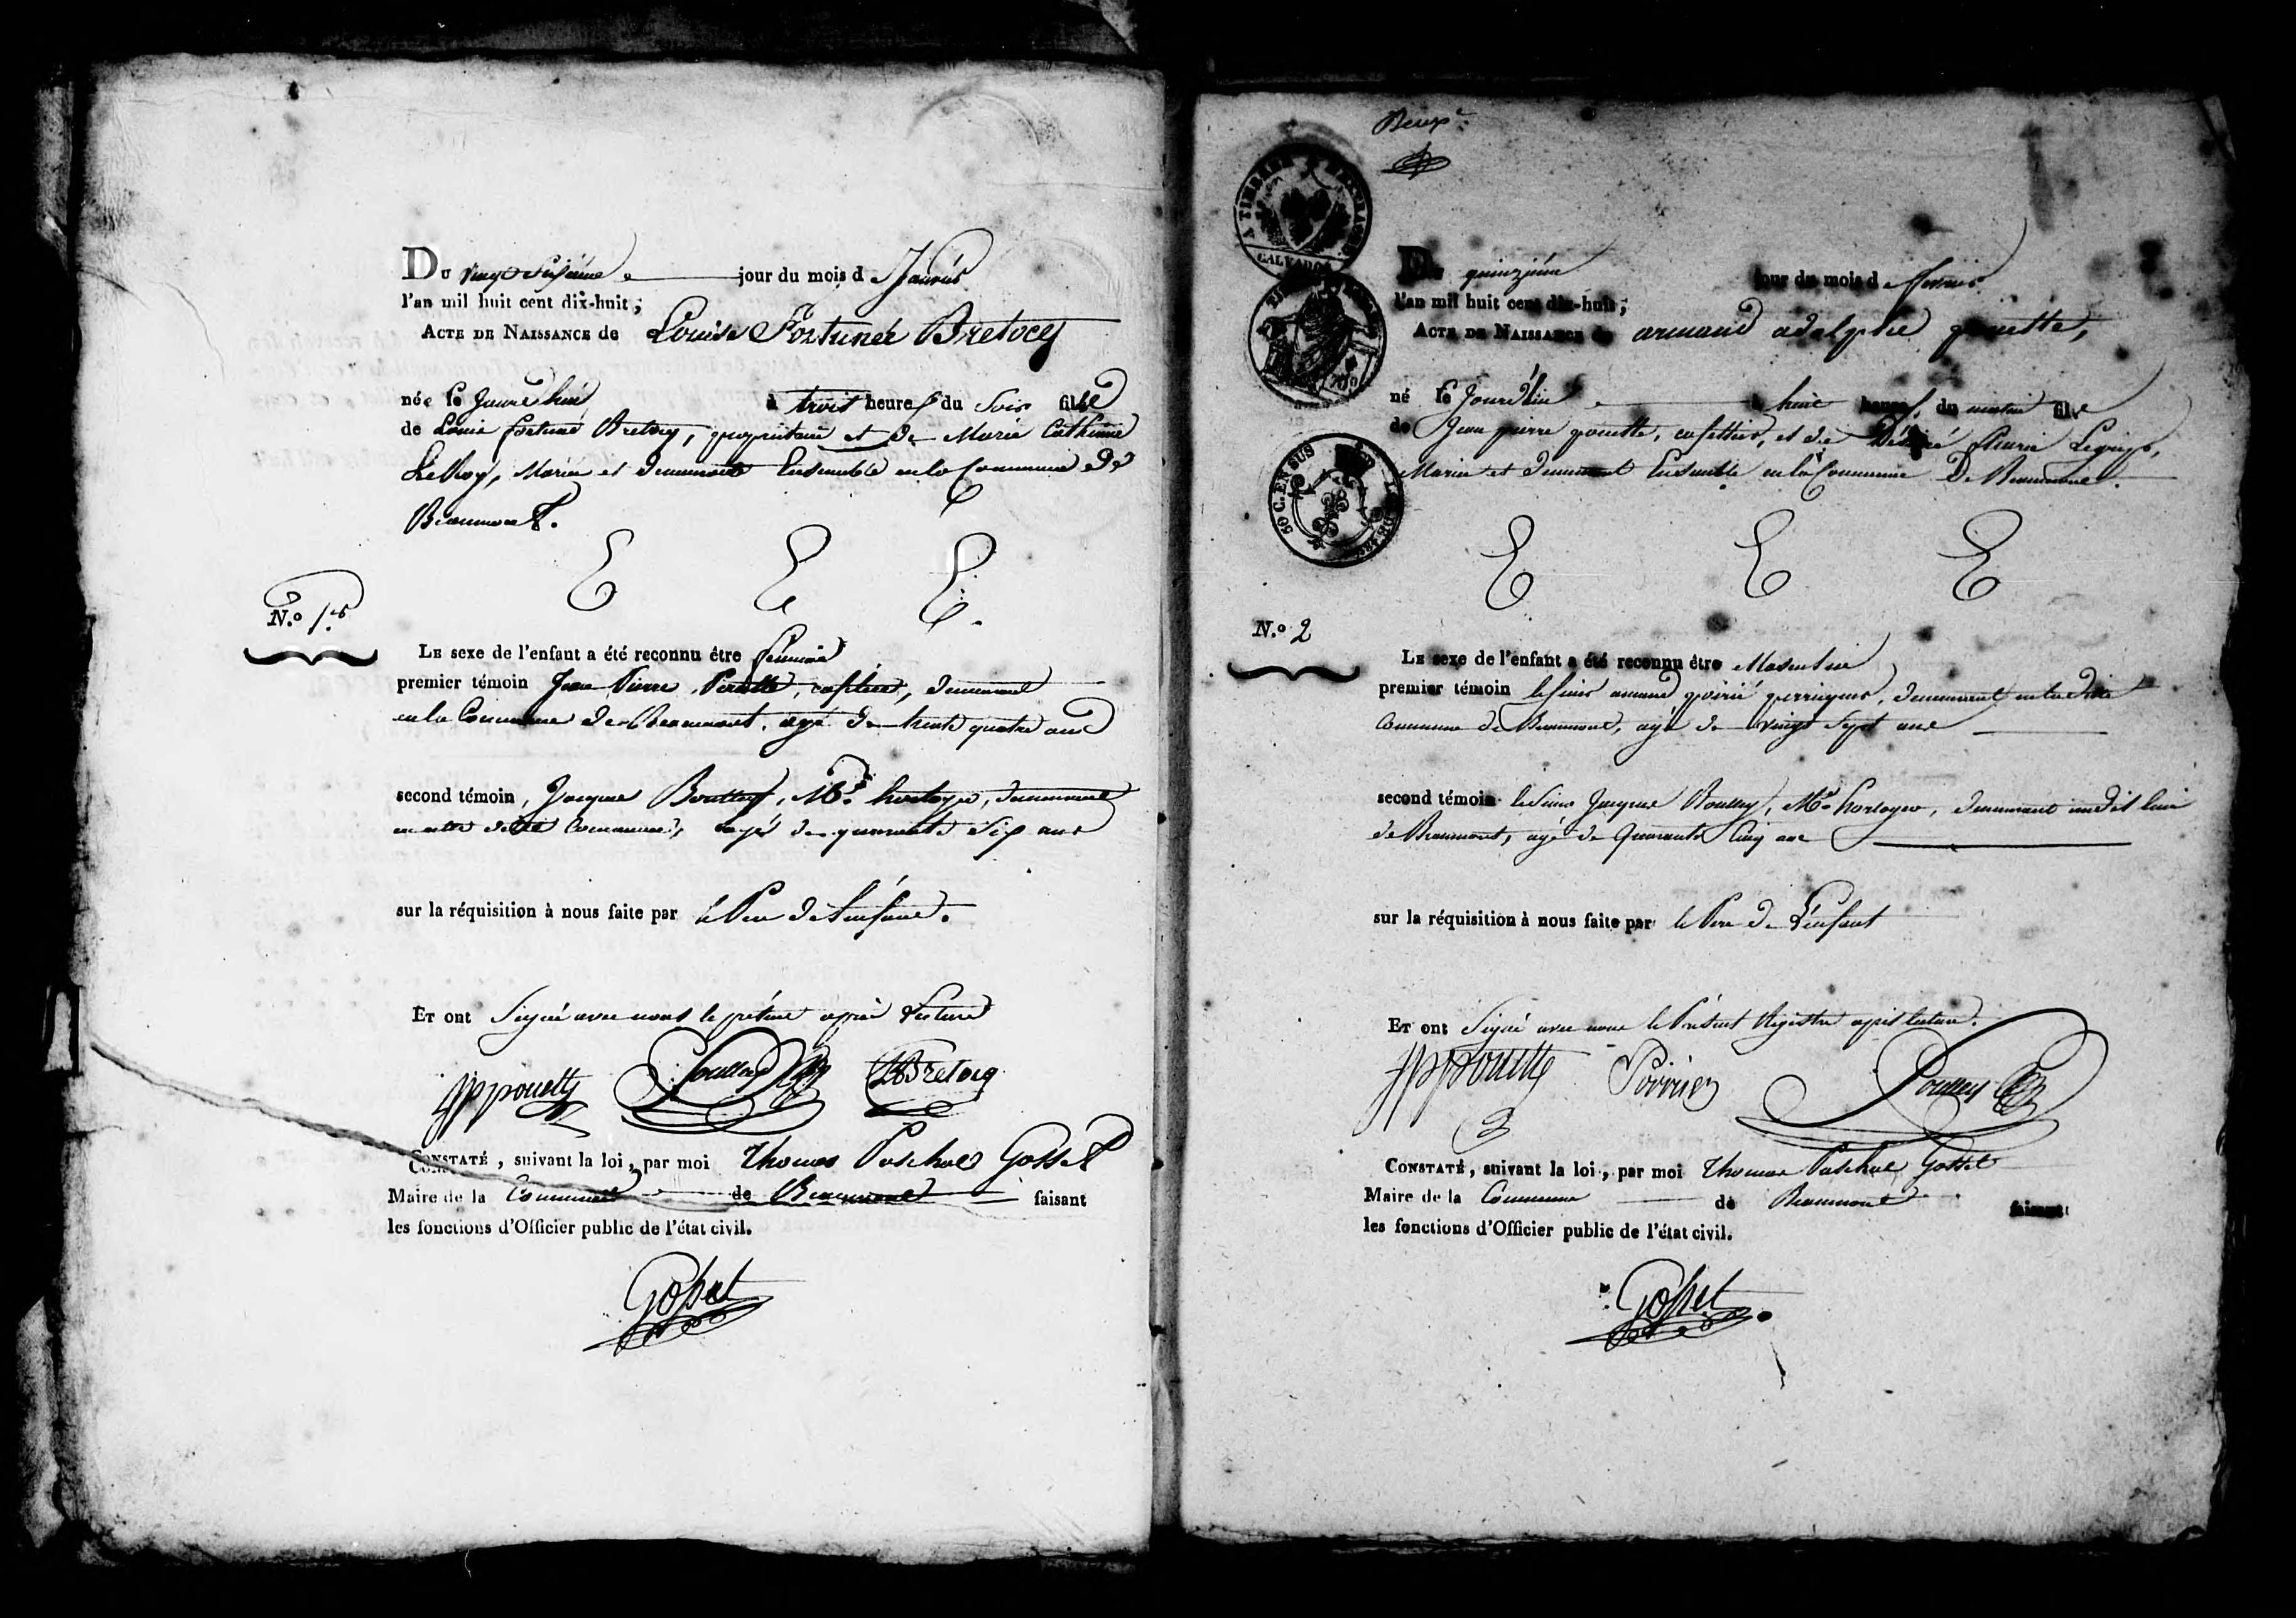 Du vingt sixième jour du mois de Janvier
l'an mil huit cent dix-huit ;
ACTE DE NAISSANCE de Louise Fortunée Bretocq
née le Jourdhui à trois heures du soir fille
de Louis fortuné Bretocq, propriétaire et de Marie Catherine
LeRoy, Mariés et demeurant Ensemble en la Commune de
Beaumont.
N.o 1er
LE sexe de l'enfant a été reconnu être féminin
premier témoin Jean Pierre Pouette, cafetier, demeurant
en la Commune de Beaumont, agé de trente quatre ans
second témoin, Jacque Boulley, Md. horloger, demeurant
commune, agé de quarante six ans
sur la réquisition à nous faite par le Pere de l'enfant.
ET ont Signé avec nous le présent après Lecture
JPpouette Boulley Bretocq
CONSTATÉ, suivant la loi, par moi Thomas Paschal Gosset
Maire de la Commune de Beaumont faisant
les fonctions d'Officier public de l'état civil.
Gosset
A TIMBRE EXTRAORD.
CALVADOS
50 C. EN SUS
Du quinzième jour du mois de fevrier
l'an mil huit cent dix-huit ;
ACTE DE NAISSANCE de armand adolphe pouette,
né le Jourdhui à huit heures du matin fils
de Jean pierre pouette, cafettier, et de Désiré Marie Legrip,
Mariés et demeurant Ensemble en la Commune De Beaumont.
N.o 2
LE sexe de l'enfant a été reconnu être Masculin
premier témoin le sieur amand poirié perruquier, demeurant en la dite
Commune de Beaumont, agé de vingt sept ans
second témoin le sieur Jacque Boulley, Md. horloger, demeurant au dit lieu
de Beaumont, agé de Quarante Cinq ans
sur la réquisition à nous faite par le Pere de L'enfant
ET ont Signé avec nous le Présent Registre après lecture.
JPpouette Poirier Boulley
CONSTATÉ, suivant la loi, par moi Thomas Paschal Gosset
Maire de la Commune de Beaumont faisant
les fonctions d'Officier public de l'état civil.
Gosset